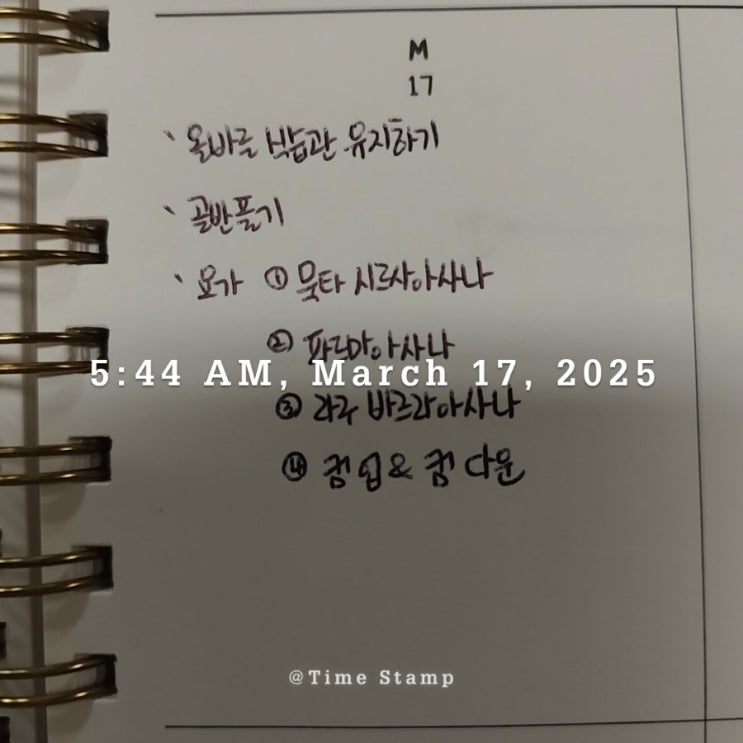 M
17
` 올바른 식습관 유지하기
` 골반풀기
` 요가 ① 묵타 시르사아사나
② 파드마아사나
5:44 AM, March 17, 2025
③ 라주 바즈라아사나
④ 컴업 & 컴다운
@Time Stamp